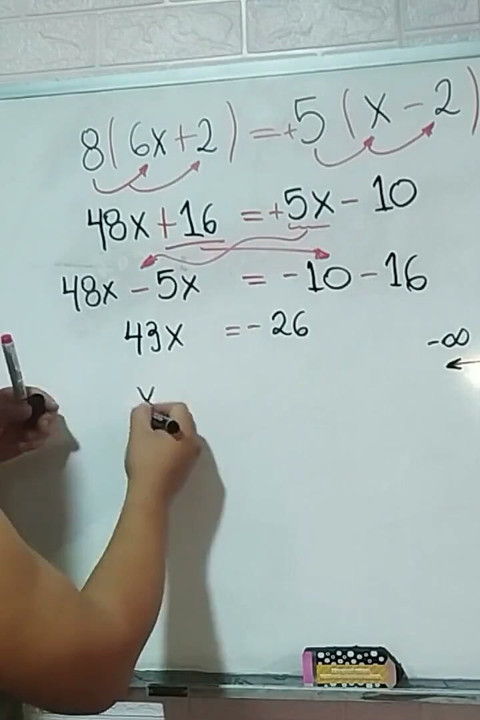 8(6x+2)=+5(x-2)
48x+16=+5x-10
48x-5x=-10-16
43x=-26
-∞
x